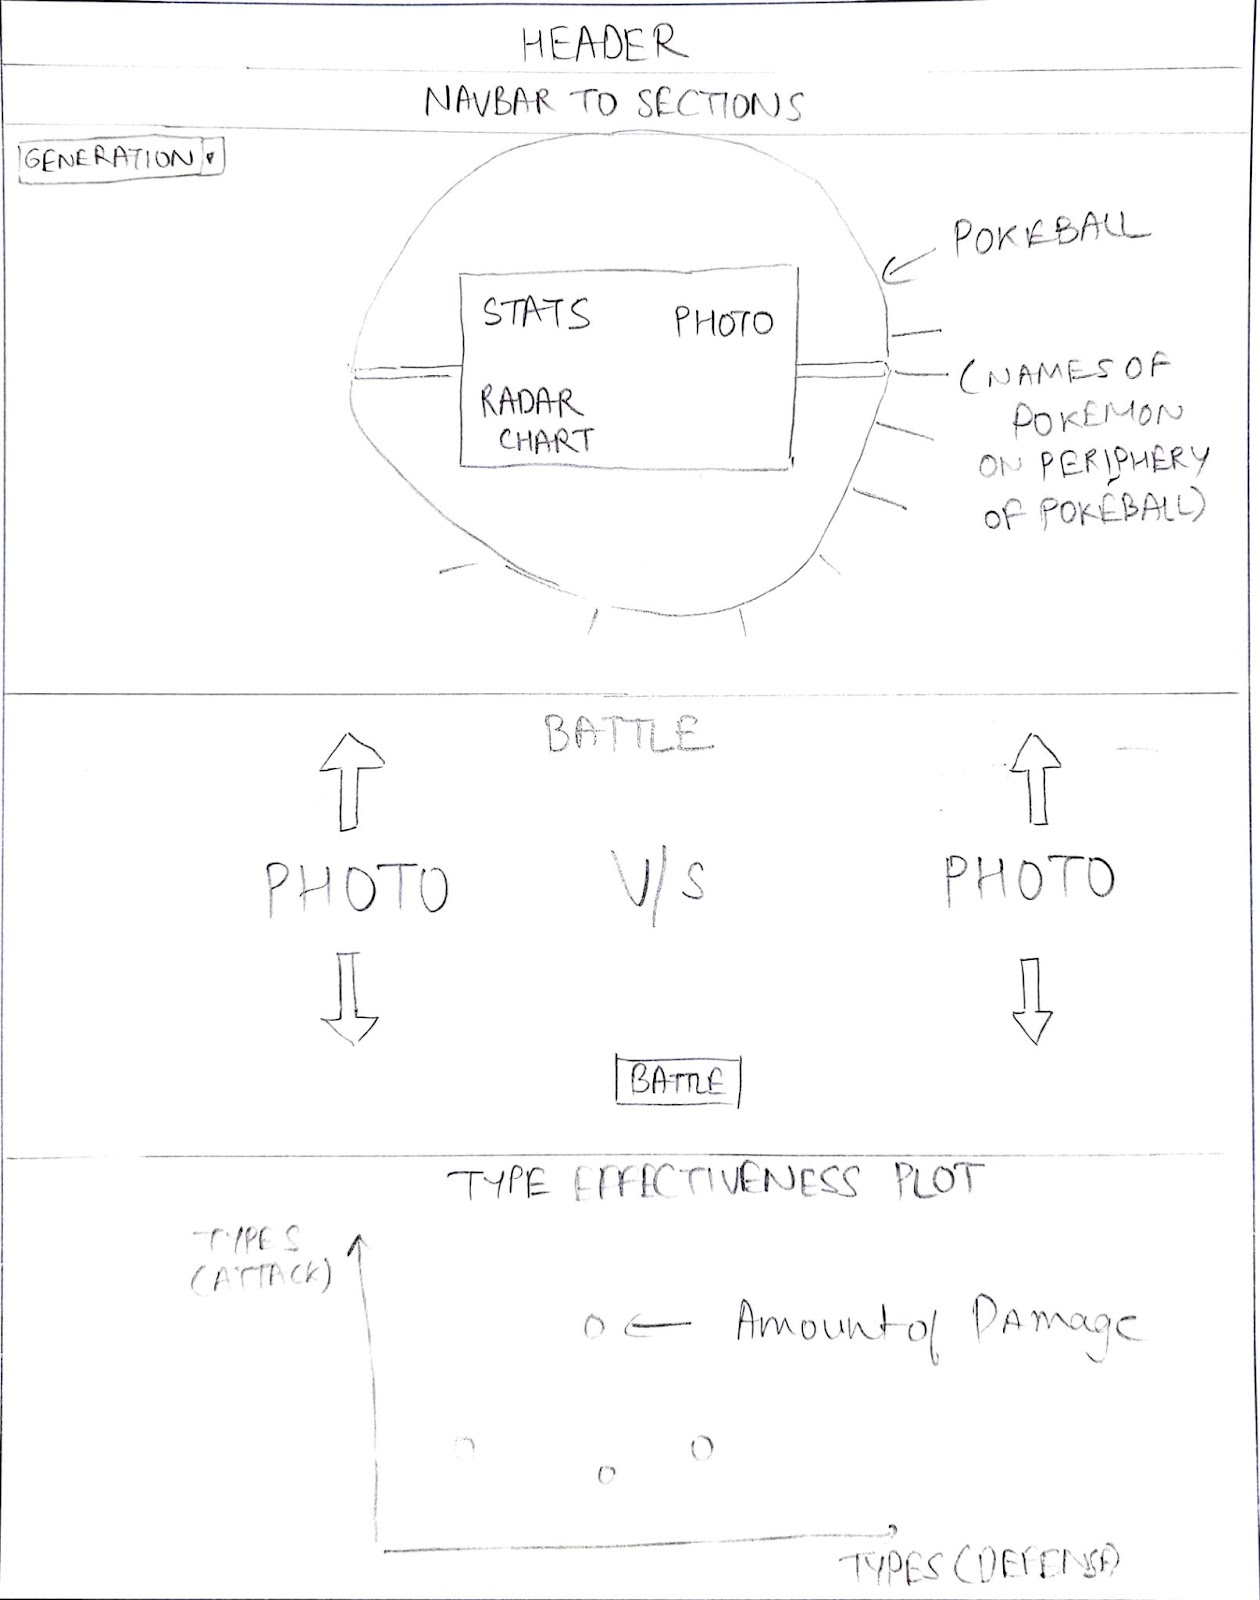 HEADER
NAVBAR TO SECTIONS
GENERATION
POKEBALL
STATS
PHOTO
RADAR
CHART
(NAMES OF
POKEMON
ON PERIPHERY
OF POKEBALL)
BATTLE
PHOTO
V/S
PHOTO
BATTLE
TYPE EFFECTIVENESS PLOT
TYPES
(ATTACK)
Amount of Damage
TYPES (DEFENSE)